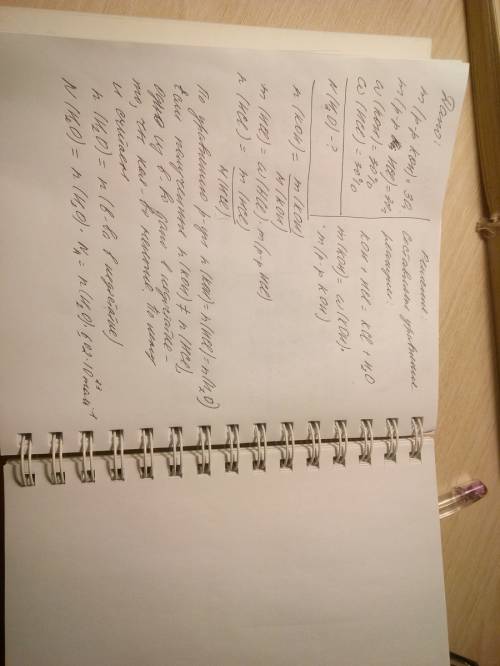 Дано:
m(р-р KOH) = 30г
m(р-р HCl) = 30г
ω(KOH) = 20%
ω(HCl) = 20%
N(H₂O) - ?
Решение:
Составим уравнение
реакции:
KOH + HCl = KCl + H₂O
m(KOH) = ω(KOH) ·
· m(р-р KOH)
n(KOH) = m(KOH) / M(KOH)
m(HCl) = ω(HCl) · m(р-р HCl)
n(HCl) = m(HCl) / M(HCl)
По уравнению р-ции n(KOH) = n(HCl) = n(H₂O)
Если получится n(KOH) ≠ n(HCl)
одно из в-в дано в недостатке -
то, чьё кол-во меньше, по нему
и считаем
n(H₂O) = n(в-ва в недостатке)
N(H₂O) = n(H₂O) · Nₐ = n(H₂O) · 6,02 · 10²³ моль⁻¹